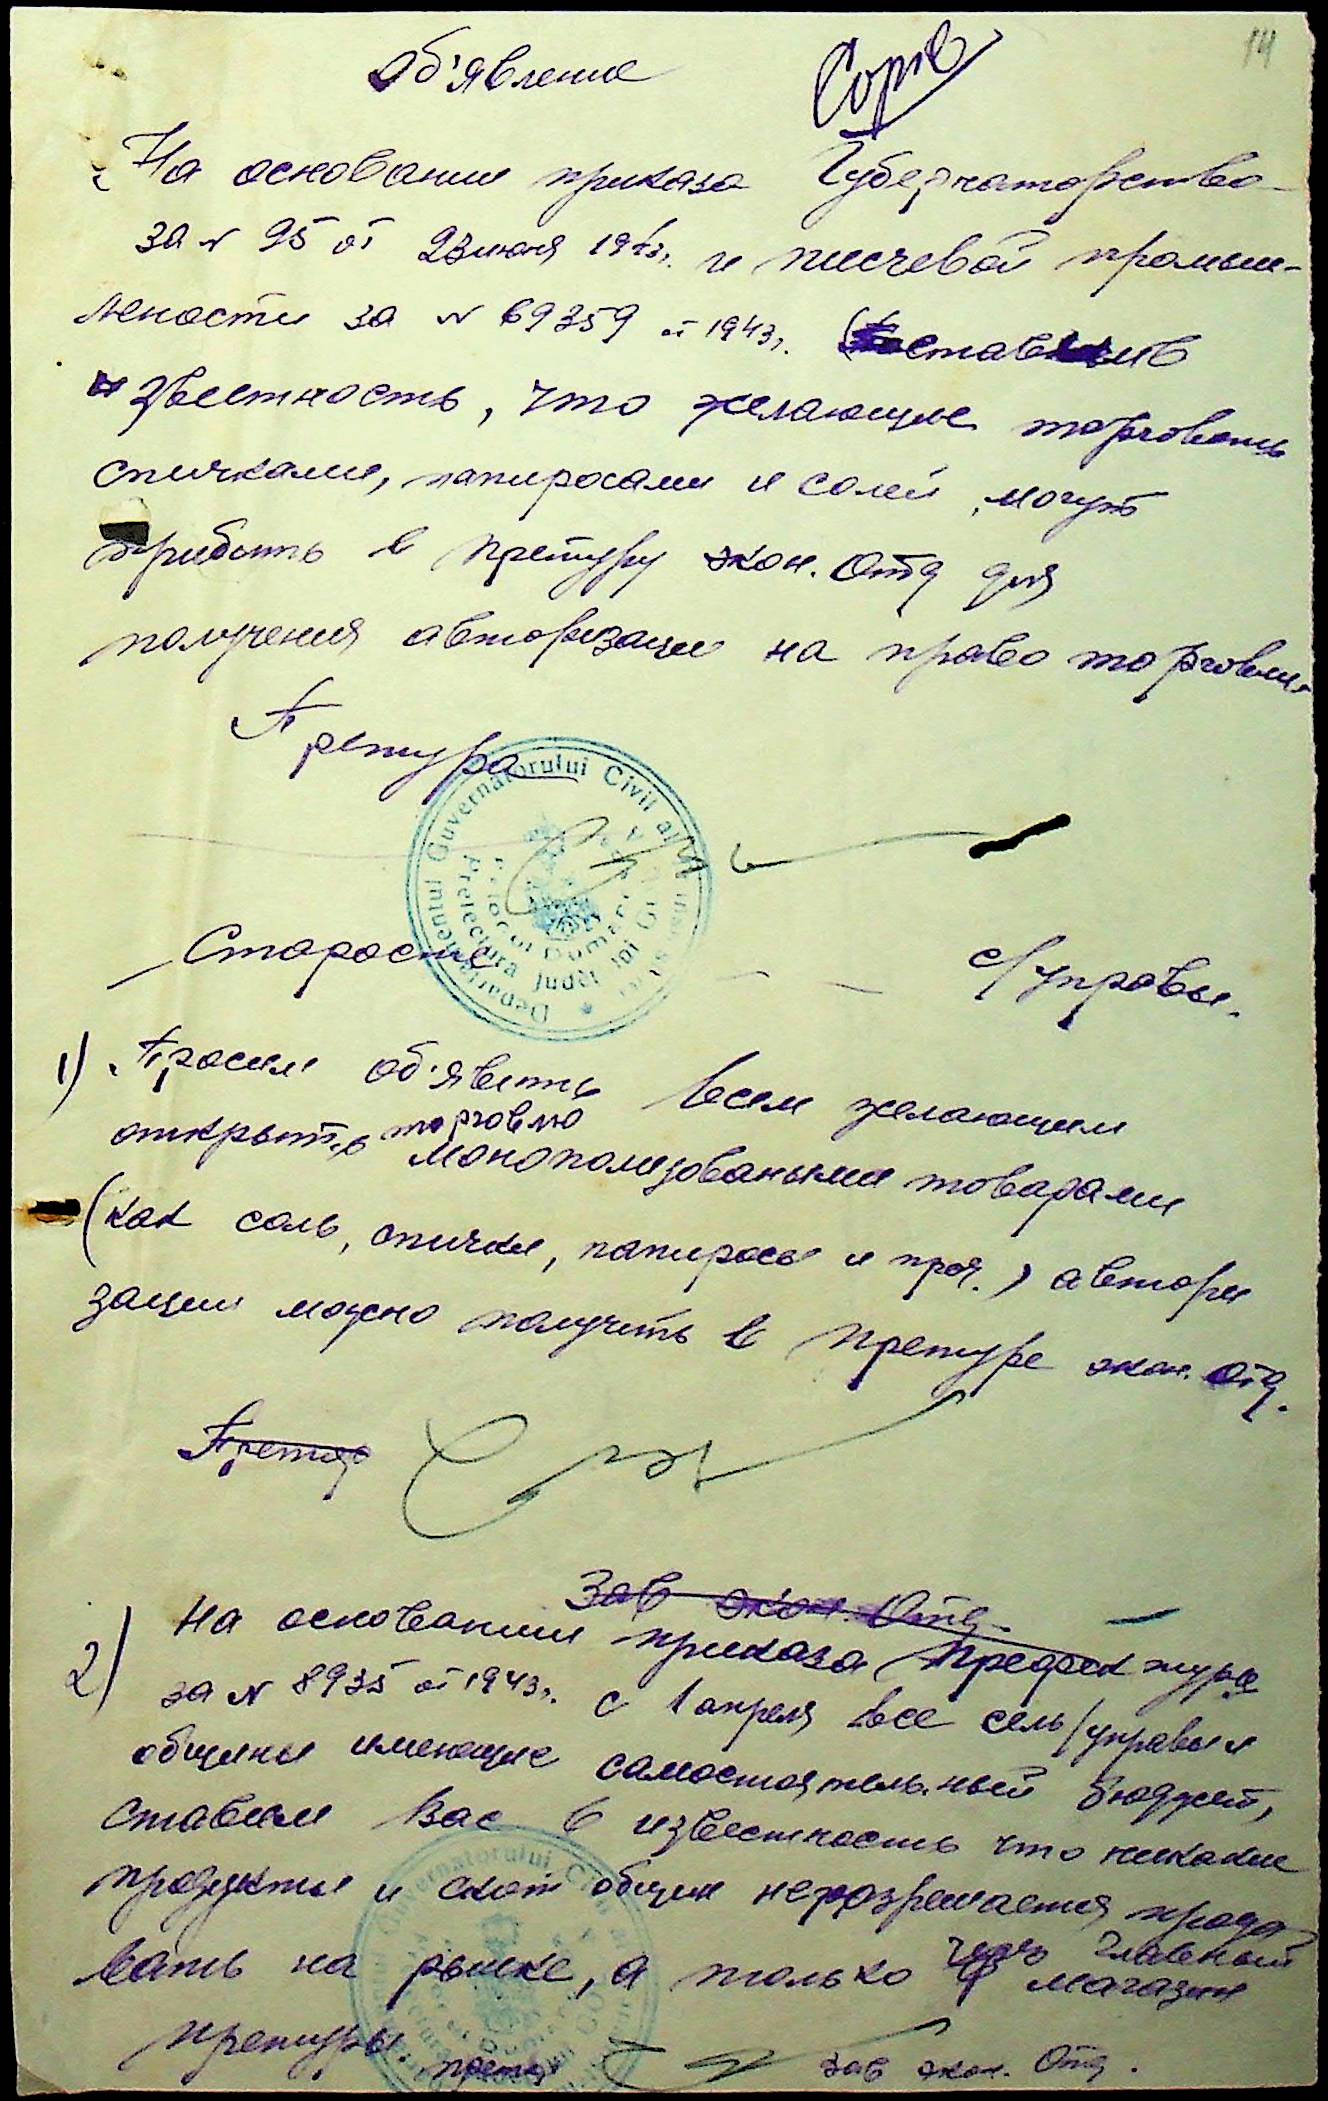 14
Об'явление
На основании приказа Губернаторство
за N 95 от 23 июня 1943 г. и писчевой промыш-
лености за N 69359 от 1943 г. ставим в
известность, что желающие торговать
спичками, папиросами и солей, могут
прибыть в претуру экон. Отд для
получения авторизации на право торговли.
Претура
Departamentul Guvernatorului Civil al
Prefectura Județului
Старосте с/управы.
1) Просим об'явить всем желающим
открыть торговлю монополизоваными товарами
(как соль, спички, папиросы и проч.) автори
зации можно получить в претуре экон. Отд.
Претор
Зав экон. Отд.
2) На основании приказа Префектуры
за N 8935 от 1943 г. с 1 апреля все сель/управы и
общины имеющие самостоятельный бюджет,
ставим Вас в известность что никакие
продукты и скот общин неразрешается прода
вать на рынке, а только через главный магазин
претуры. претор зав экон. Отд.